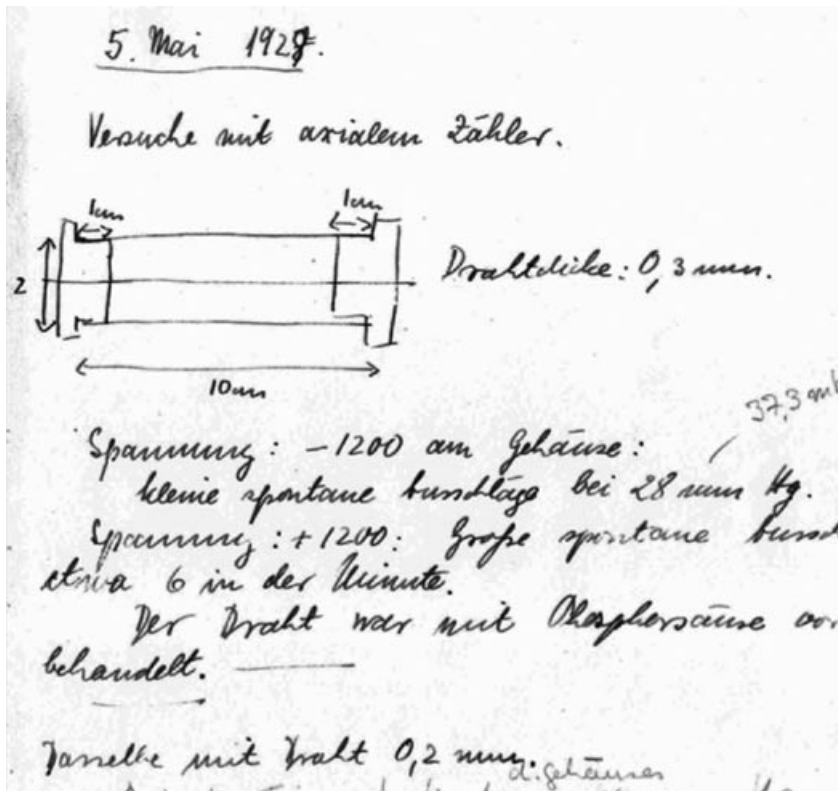 5. Mai 1928.
Versuche mit axialem Zähler.
1cm
1cm
2
Drahtdicke: 0,3 mm.
10cm
37,3 mb
Spannung: -1200 am Gehäuse:
kleine spontane Ausschläge bei 28 mm Hg.
Spannung: +1200: Große spontane Aussch
etwa 6 in der Minute.
Der Draht war mit Phosphorsäure vor
behandelt.
Dasselbe mit Draht 0,2 mm.
d. Gehäuses